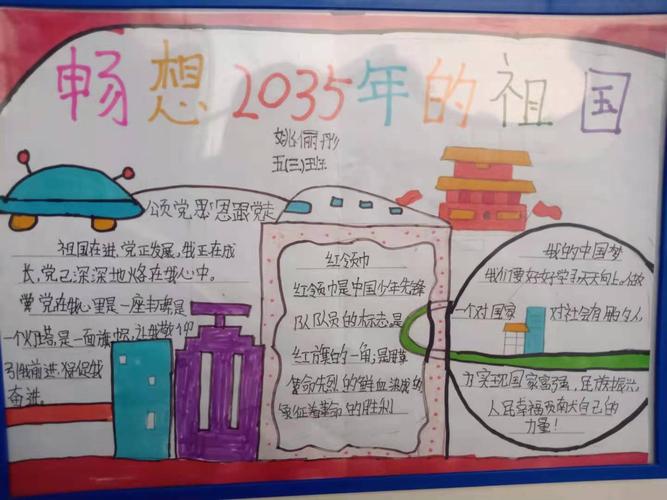 畅想2035年的祖国
姚俪彤
五(三)班
颂党恩 跟党走
祖国在进,党正发展,我正在成
长,党已深深地烙在我心中。
党在我心里是一座丰碑,是
一个灯塔,是一面旗帜,让我敬仰
引我前进,催促我
奋进。
红领巾
红领巾是中国少年先锋
队队员的标志,是
红旗的一角,是用
革命先烈的鲜血染成的
象征着革命的胜利
我的中国梦
我们要好好学习天天向上,做
一个对国家 对社会有用的人
为实现国家富强,民族振兴,
人民幸福贡献大自己的
力量!